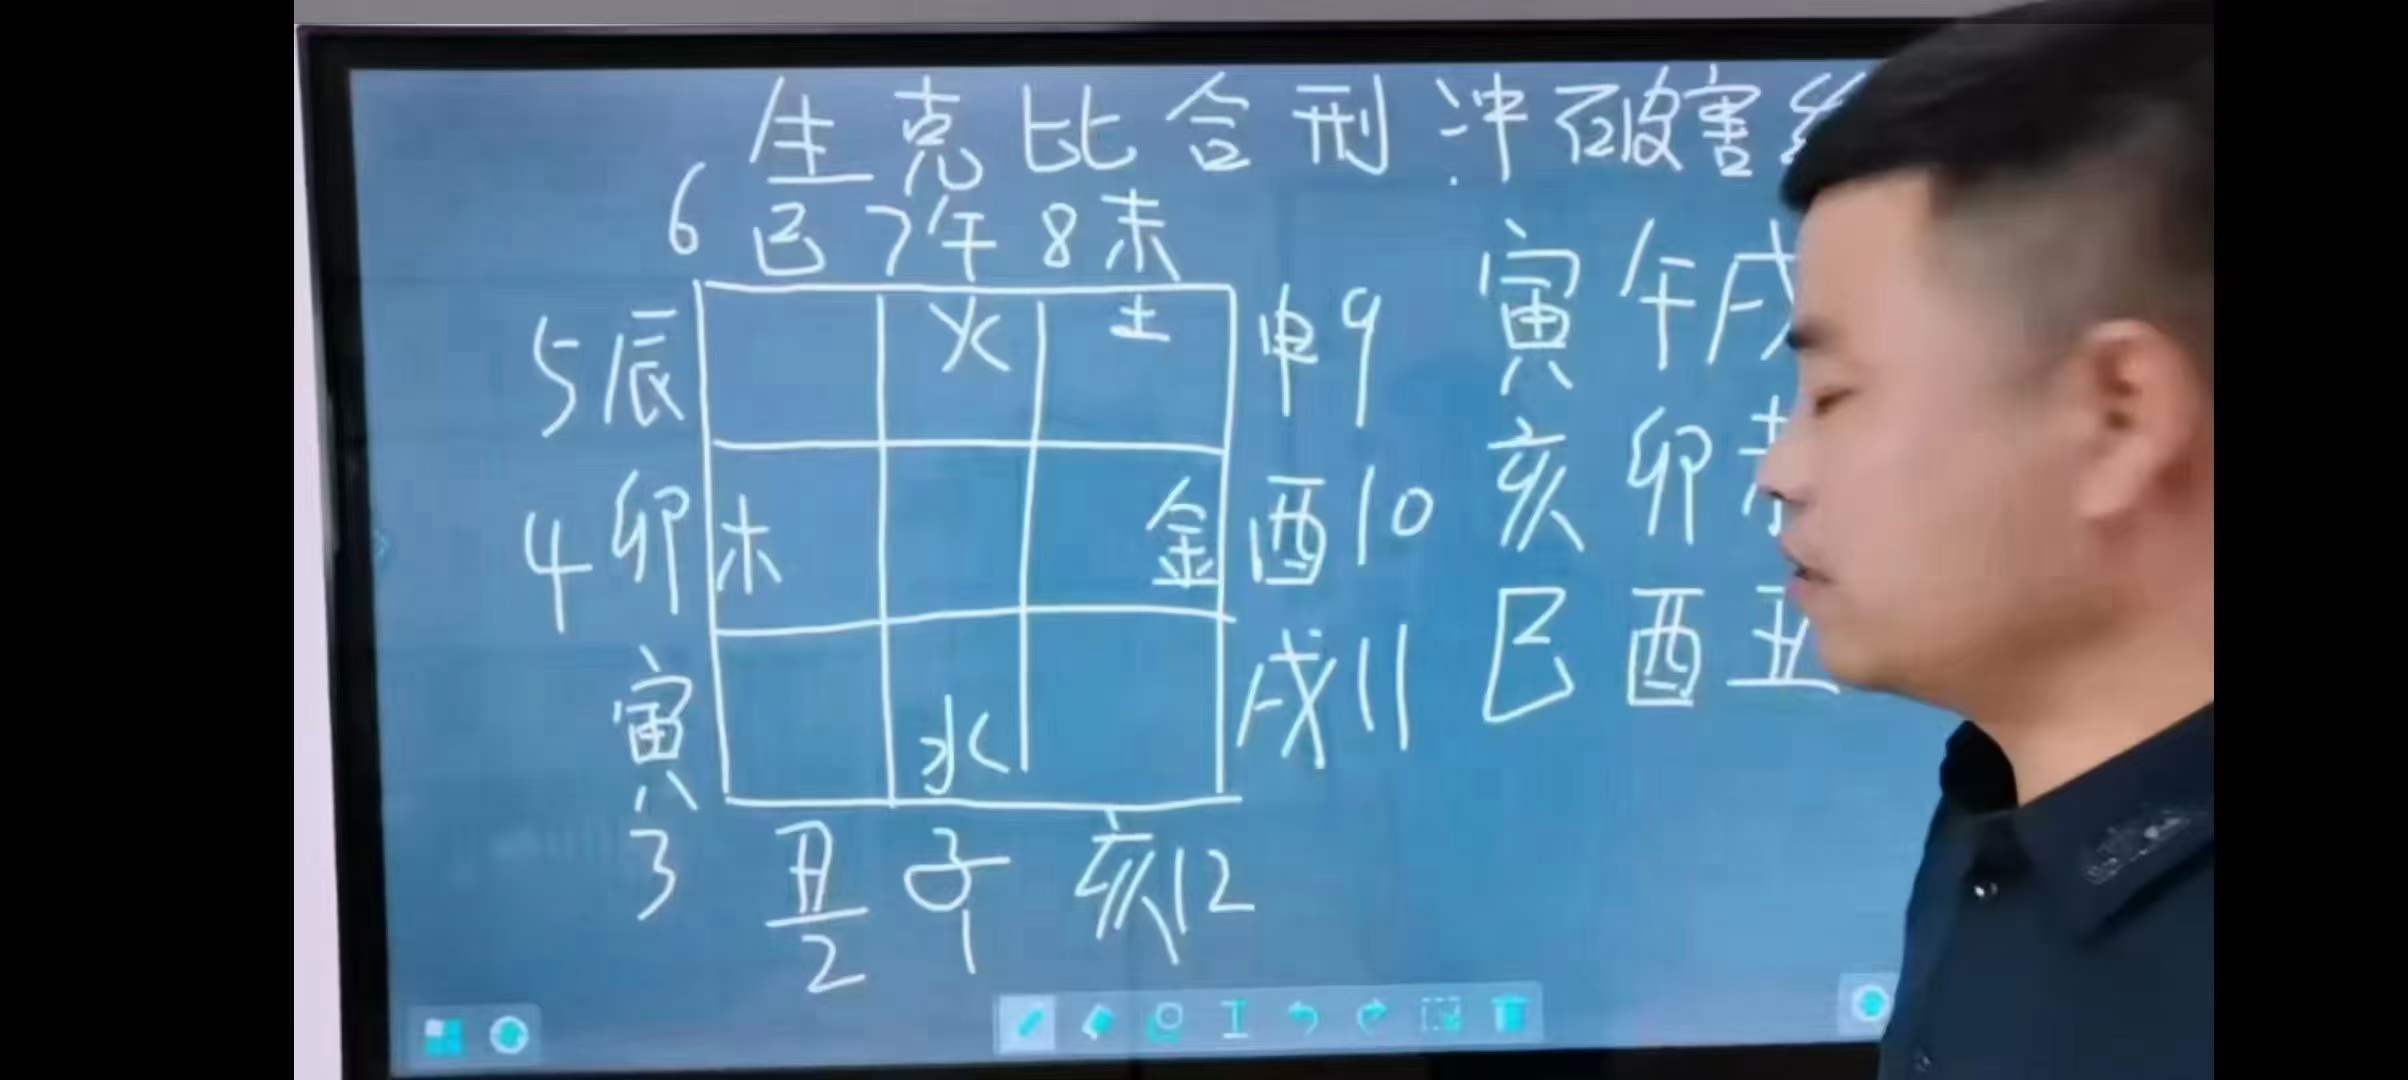 生克比合刑冲破害
6巳7午8未
火 土
5辰 申9
寅午戌
4卯 木 金 酉10
亥卯未
寅 戌11
巳酉丑
水
3 丑 子 亥12
2 1